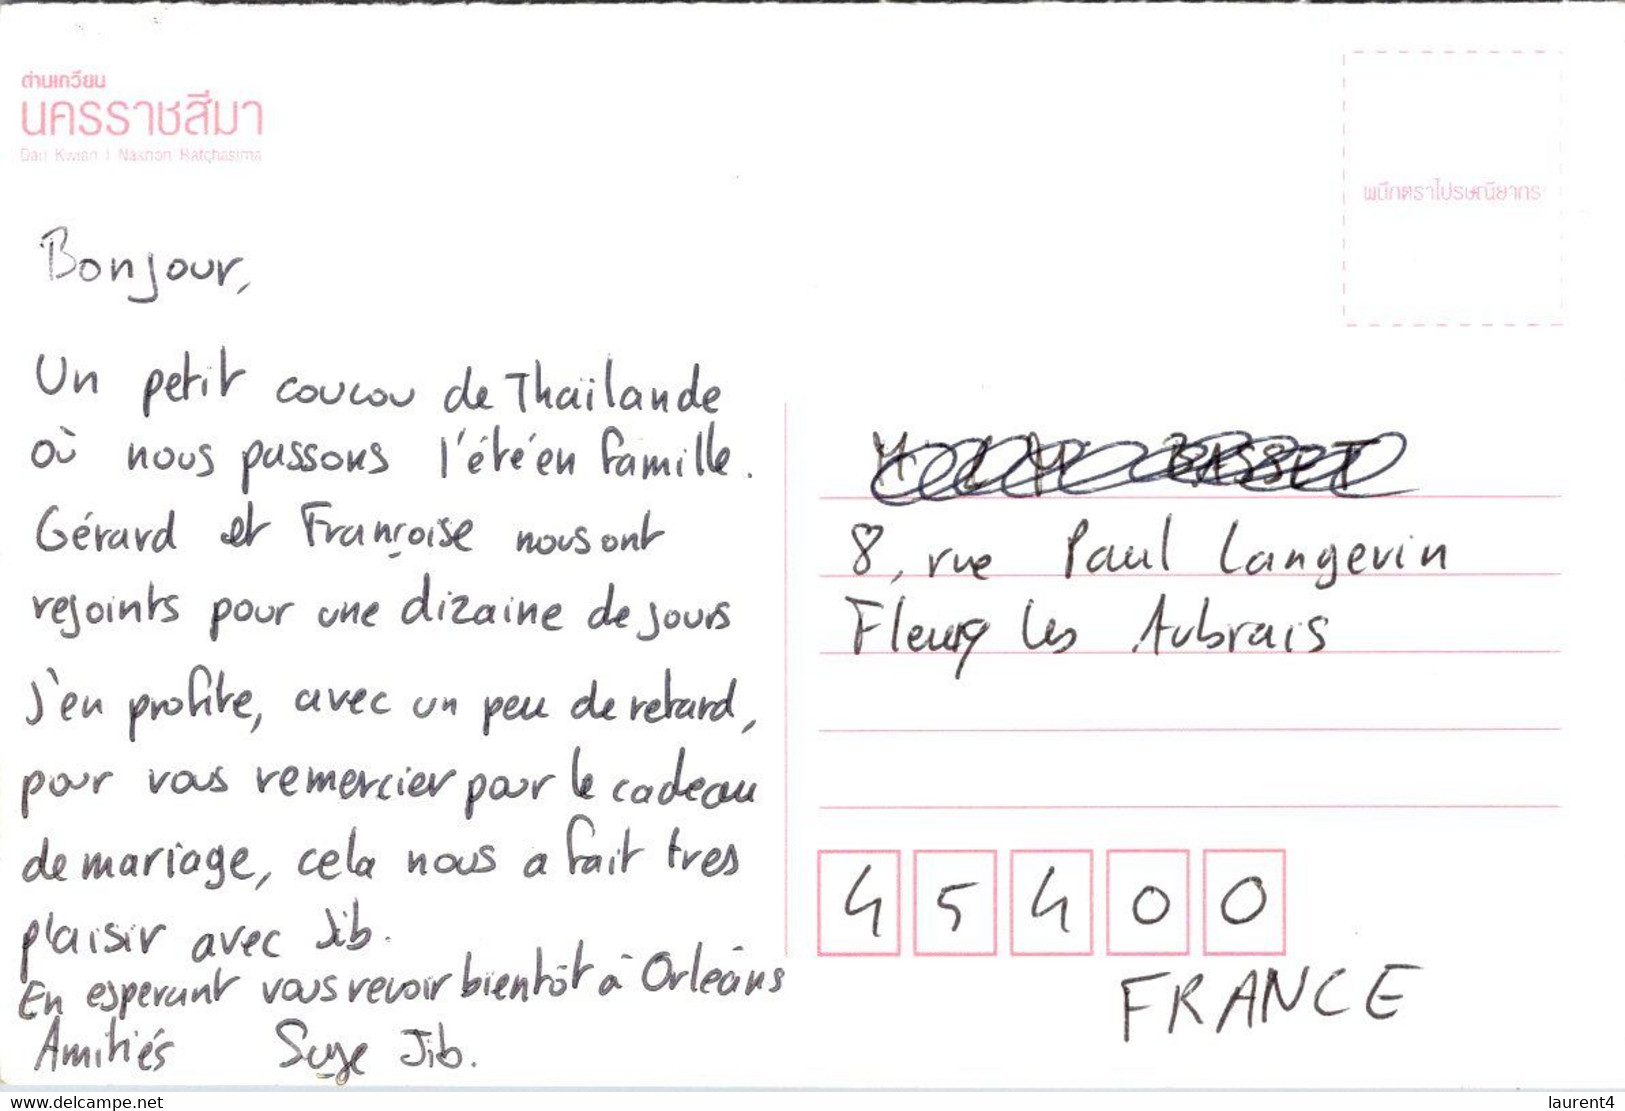 ด่านเกวียน
นครราชสีมา
Dan Kwian | Nakhon Ratchasima
ผนึกตราไปรษณียากร
Bonjour,
Un petit coucou de Thaïlande
où nous passons l'été en famille.
Gérard et Françoise nous ont
rejoints pour une dizaine de jours
J'en profite, avec un peu de retard,
pour vous remercier pour le cadeau
de mariage, cela nous a fait tres
plaisir avec Jib.
En esperant vous revoir bientôt à Orléans
Amitiés Jib.
8, rue Paul Langevin
Fleury les Aubrais
45400
FRANCE
www.delcampe.net
laurent4